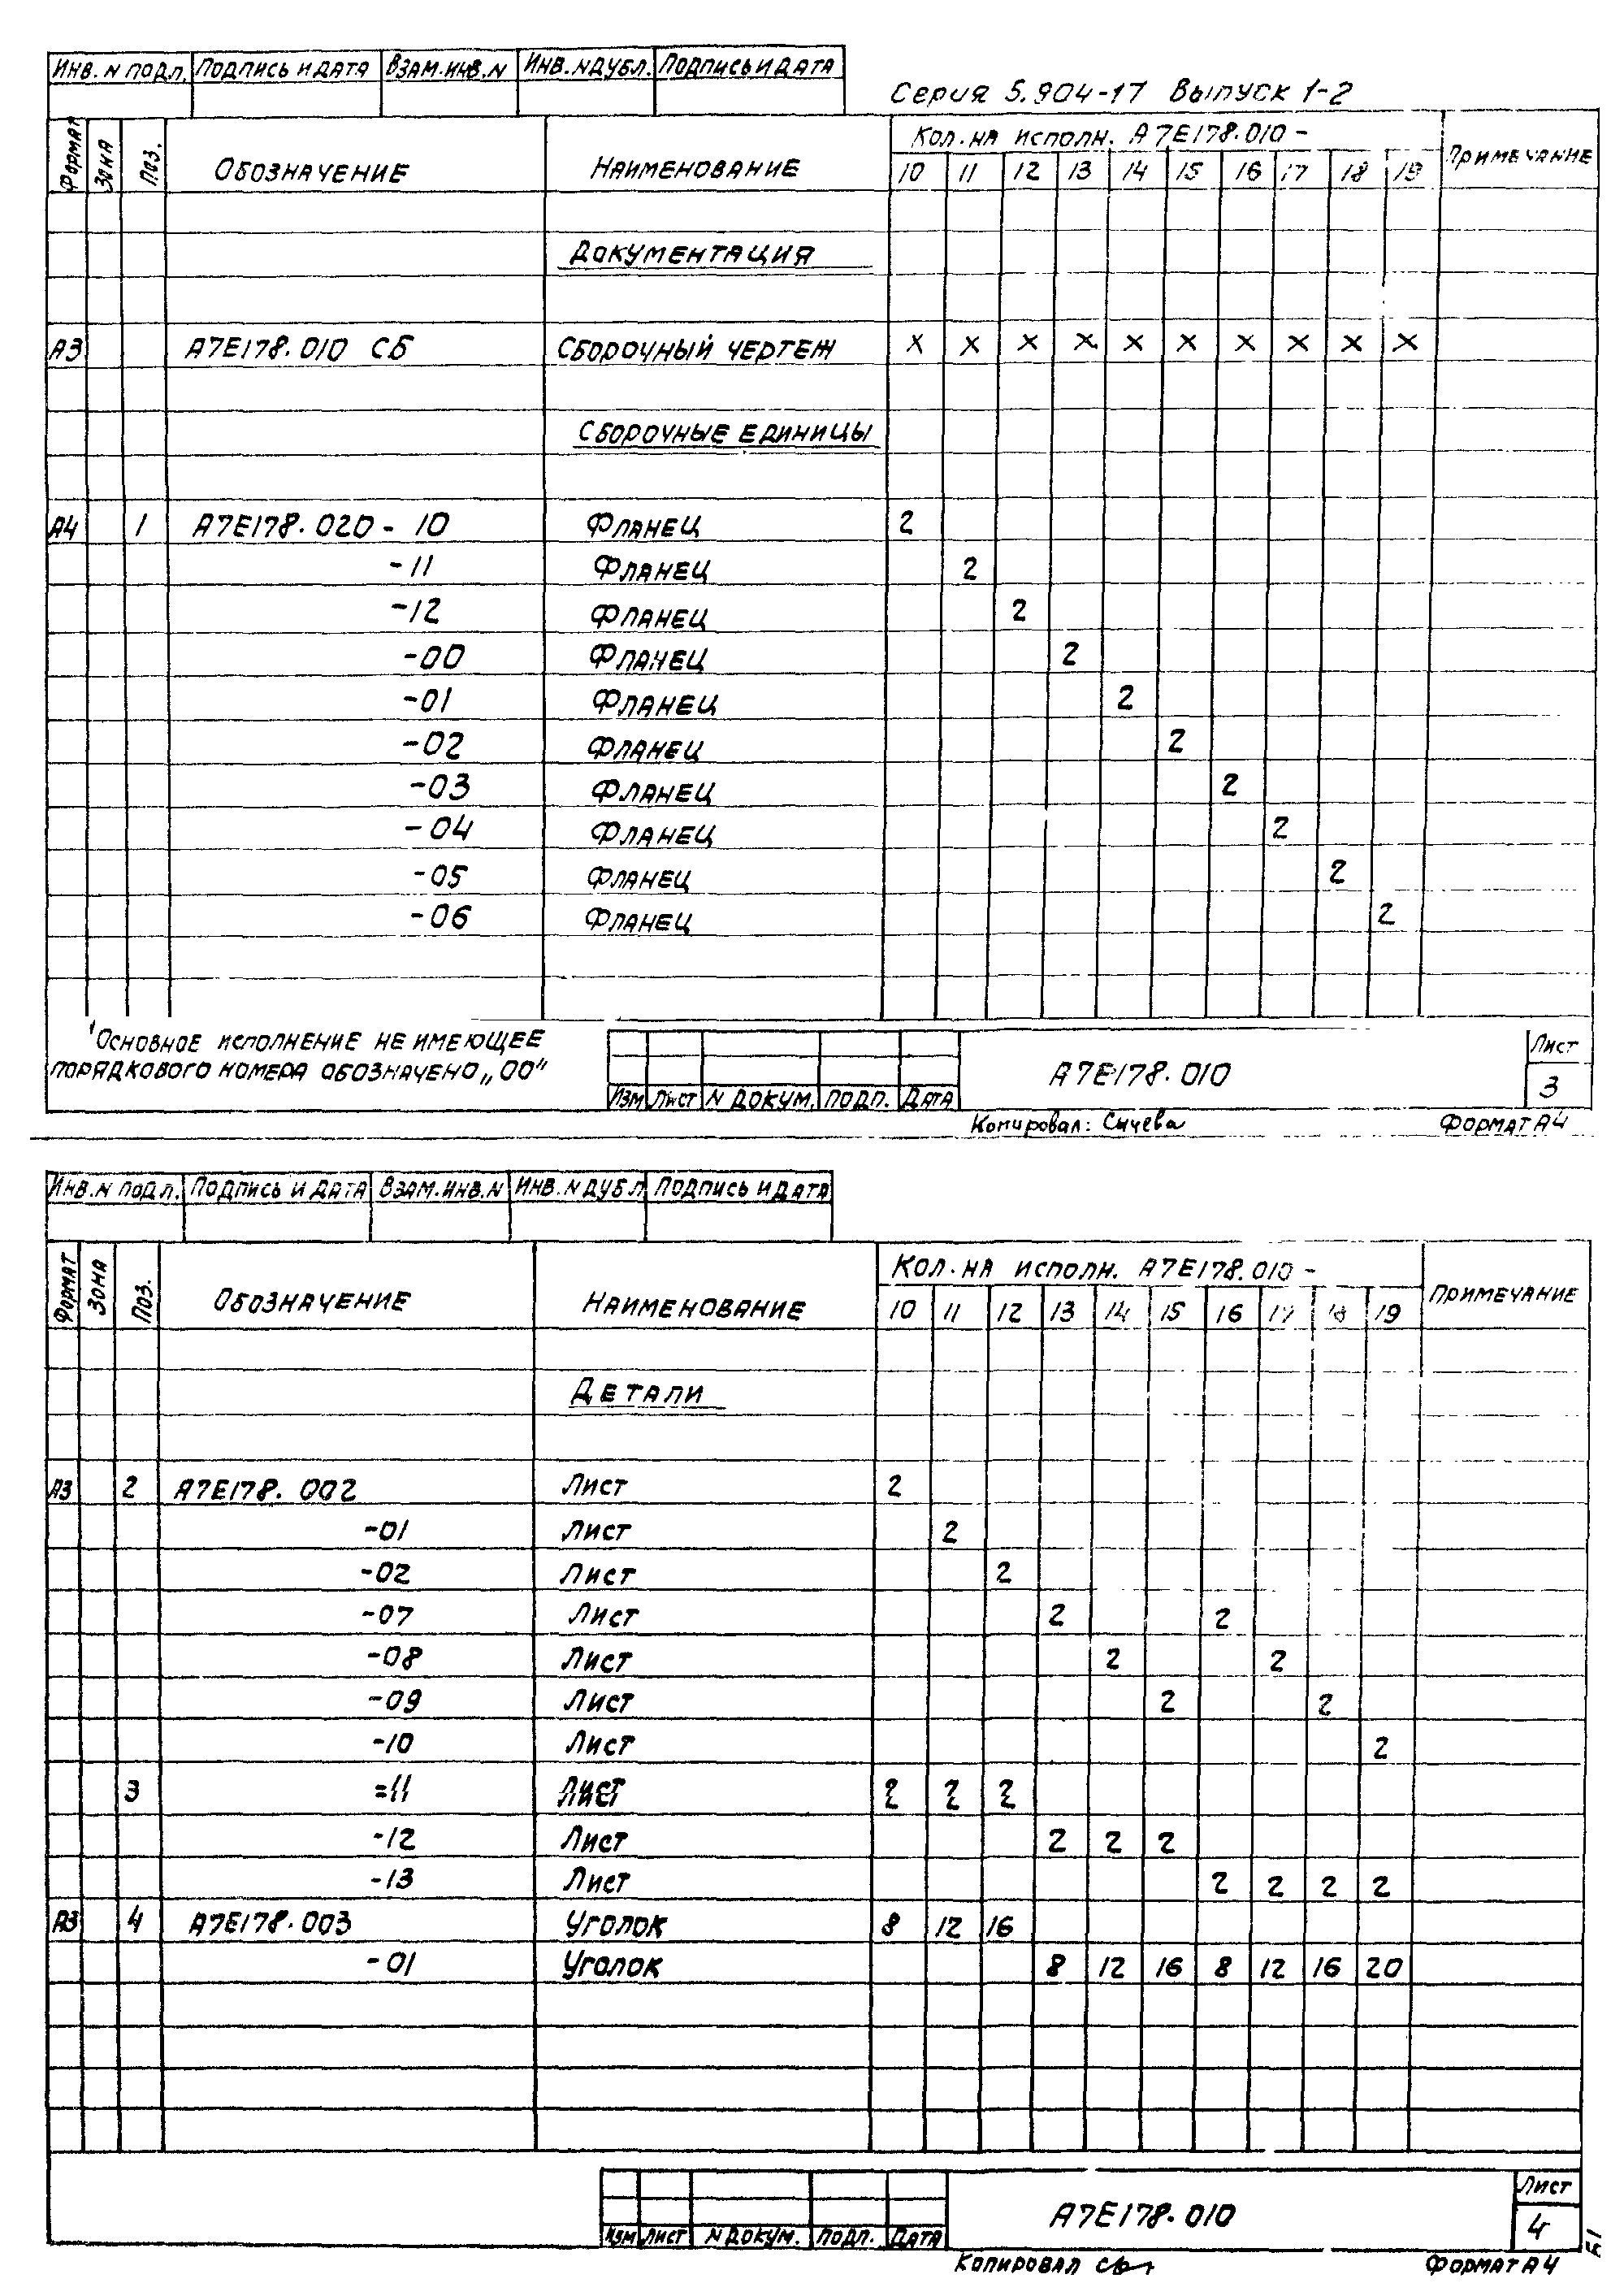 Инв. N подл. Подпись и дата Взам. инв. N Инв. N дубл. Подпись и дата
Серия 5.904-17 Выпуск 1-2
Формат Зона Поз. Обозначение Наименование Кол. на исполн. А7Е178.010- Примечание
10 11 12 13 14 15 16 17 18 19
Документация
А3 А7Е178.010 СБ Сборочный чертеж х х х х х х х х х х
Сборочные единицы
А4 1 А7Е178.020 - 10 Фланец 2
-11 Фланец 2
-12 Фланец 2
-00 Фланец 2
-01 Фланец 2
-02 Фланец 2
-03 Фланец 2
-04 Фланец 2
-05 Фланец 2
-06 Фланец 2
¹Основное исполнение не имеющее
порядкового номера обозначено „00"
Изм Лист N докум. Подп. Дата
А7Е178.010
Лист
3
Копировал: Сычева Формат А4
Инв. N подл. Подпись и дата Взам. инв. N Инв. N дубл Подпись и дата
Формат Зона Поз. Обозначение Наименование Кол. на исполн. А7Е178.010 - Примечание
10 11 12 13 14 15 16 17 18 19
Детали
А3 2 А7Е178.002 Лист 2
-01 Лист 2
-02 Лист 2
-07 Лист 2 2
-08 Лист 2 2
-09 Лист 2 2
-10 Лист 2
3 -11 Лист 2 2 2
-12 Лист 2 2 2
-13 Лист 2 2 2 2
А3 4 А7Е178.003 Уголок 8 12 16
-01 Уголок 8 12 16 8 12 16 20
Изм Лист N докум. Подп. Дата
А7Е178.010
Лист
4
Копировал Формат А4